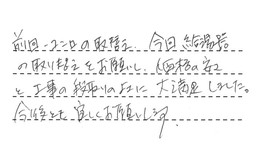 前回コンロの取替え、今回給湯器
の取り替えをお願いし、価格の安さ
と工事の段取りのよさに大満足しました。
今後とも宜しくお願いします。